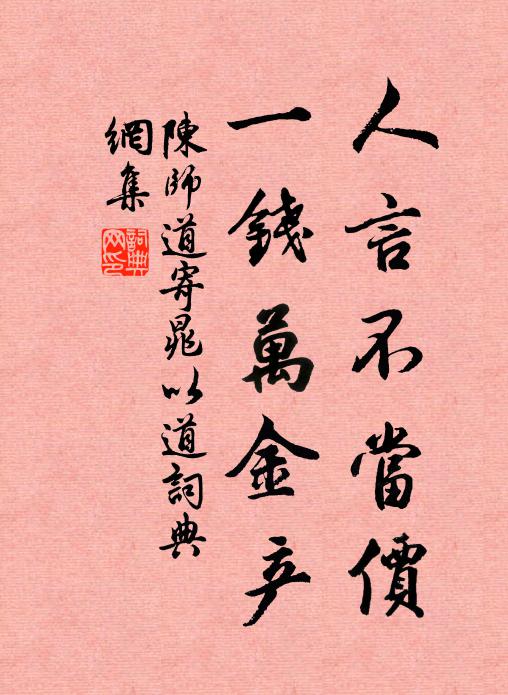 人言不當價
一錢萬金产
陳師道寄晁以道詞典
網集
詞典網印